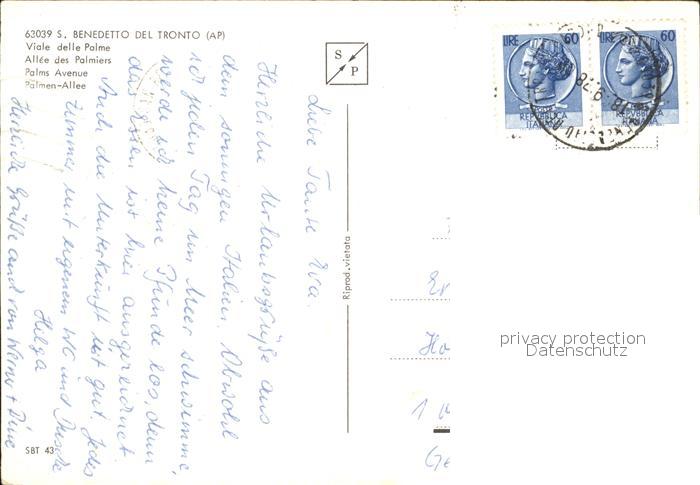 63039 S. BENEDETTO DEL TRONTO (AP)
Viale delle Palme
Allée des Palmiers
Palms Avenue
Palmen-Allee
S
P
LIRE 60
REPVBBLICA
ITALIANA
LIRE 60
REPVBBLICA
ITALIANA
Liebe Tante Eva.
Herzliche Urlaubsgrüße aus
dem sonnigen Italien. Obwohl
ich jeden Tag im Meer schwimme,
werde ich keine Pfunde los, denn
das Essen ist hier ausgezeichnet.
Auch die Unterkunft ist gut. Jedes
Zimmer mit eigenem WC und Dusche
Herzliche Grüße auch von Werner +
Helga
Riprod. vietata
SBT 43
privacy protection
Datenschutz